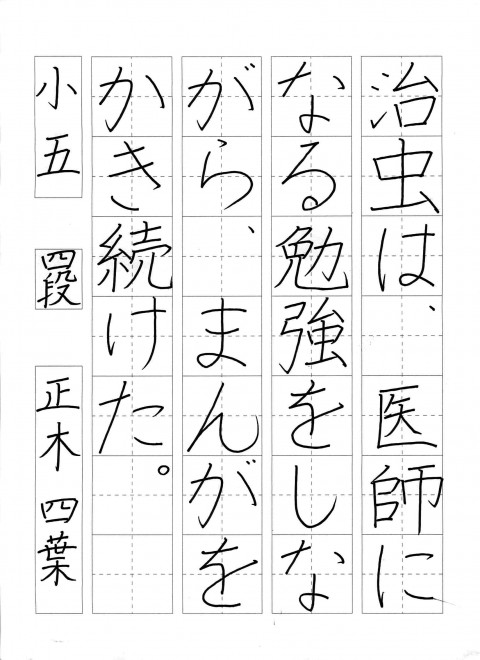 治虫は、医師に
なる勉強をしな
がら、まんがを
かき続けた。
小五 四段 正木四葉